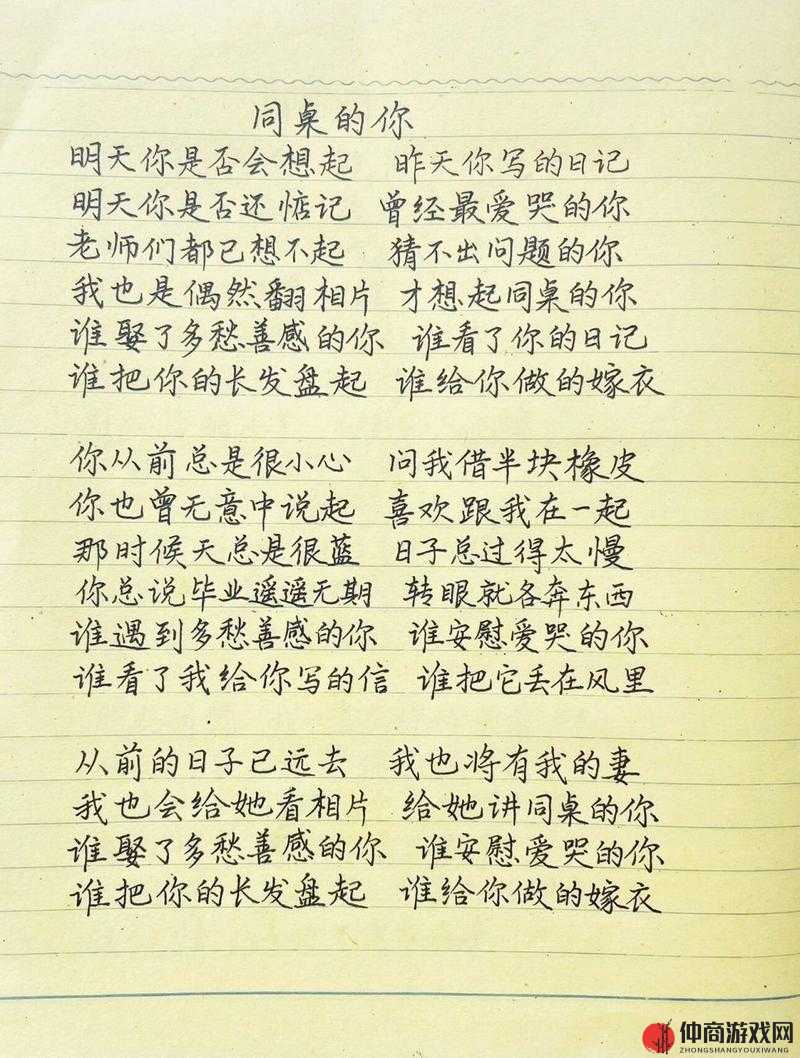 同桌的你
明天你是否会想起 昨天你写的日记
明天你是否还惦记 曾经最爱哭的你
老师们都已想不起 猜不出问题的你
我也是偶然翻相片 才想起同桌的你
谁娶了多愁善感的你 谁看了你的日记
谁把你的长发盘起 谁给你做的嫁衣
你从前总是很小心 问我借半块橡皮
你也曾无意中说起 喜欢跟我在一起
那时候天总是很蓝 日子总过得太慢
你总说毕业遥遥无期 转眼就各奔东西
谁遇到多愁善感的你 谁安慰爱哭的你
谁看了我给你写的信 谁把它丢在风里
从前的日子已远去 我也将有我的妻
我也会给她看相片 给她讲同桌的你
谁娶了多愁善感的你 谁安慰爱哭的你
谁把你的长发盘起 谁给你做的嫁衣
仲商游戏网
ZHONGSHANGYOUXIWANG